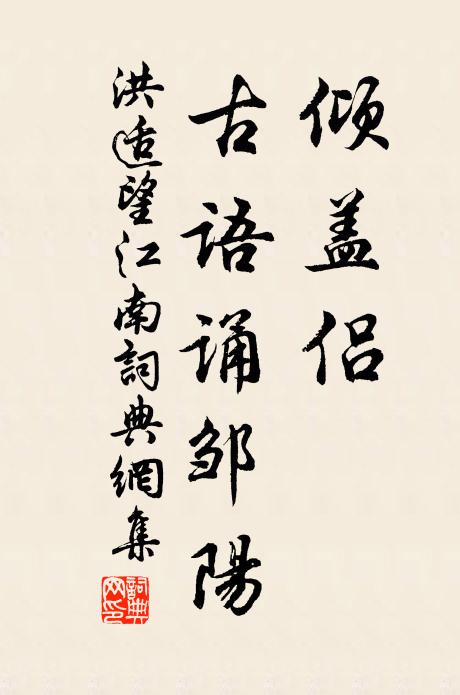 倾盖侣
古语诵邹陽
洪适望江南詞典網集
詞典
网印